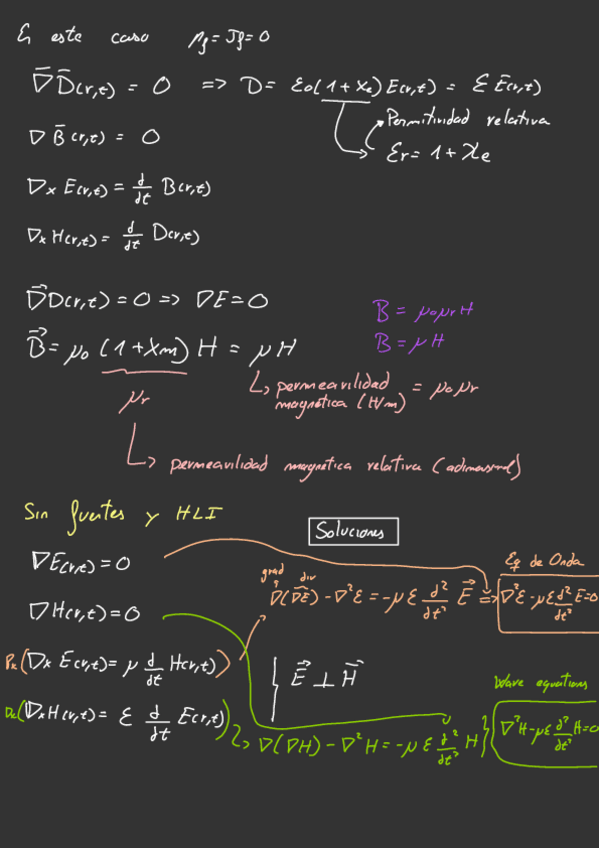 En este caso ρf = Jf = 0
∇⃗ D⃗(r,t) = 0 => D = ε₀(1 + χe) E(r,t) = ε E⃗(r,t)
Permitividad relativa
εr = 1 + χe
∇ B⃗(r,t) = 0
∇x E(r,t) = d/dt B(r,t)
∇x H(r,t) = d/dt D(r,t)
∇⃗D(r,t) = 0 => ∇E = 0
B = μ₀μrH
B⃗ = μ₀ (1 + χm) H = μH
B = μH
permeavilidad magnética (H/m) = μ₀μr
μr
permeavilidad magnética relativa (adimensional)
Sin fuentes y HLI
Soluciones
∇E(r,t) = 0
grad div
Eq de Onda
∇(∇E) - ∇²E = -με d²/dt² E⃗ => ∇²E - με d²/dt² E = 0
∇H(r,t) = 0
(∇x E(r,t) = μ d/dt H(r,t))
E⃗ ⊥ H⃗
Wave equations
(∇x H(r,t) = ε d/dt E(r,t))
∇(∇H) - ∇²H = -με d²/dt² H } ∇²H - με d²/dt² H = 0